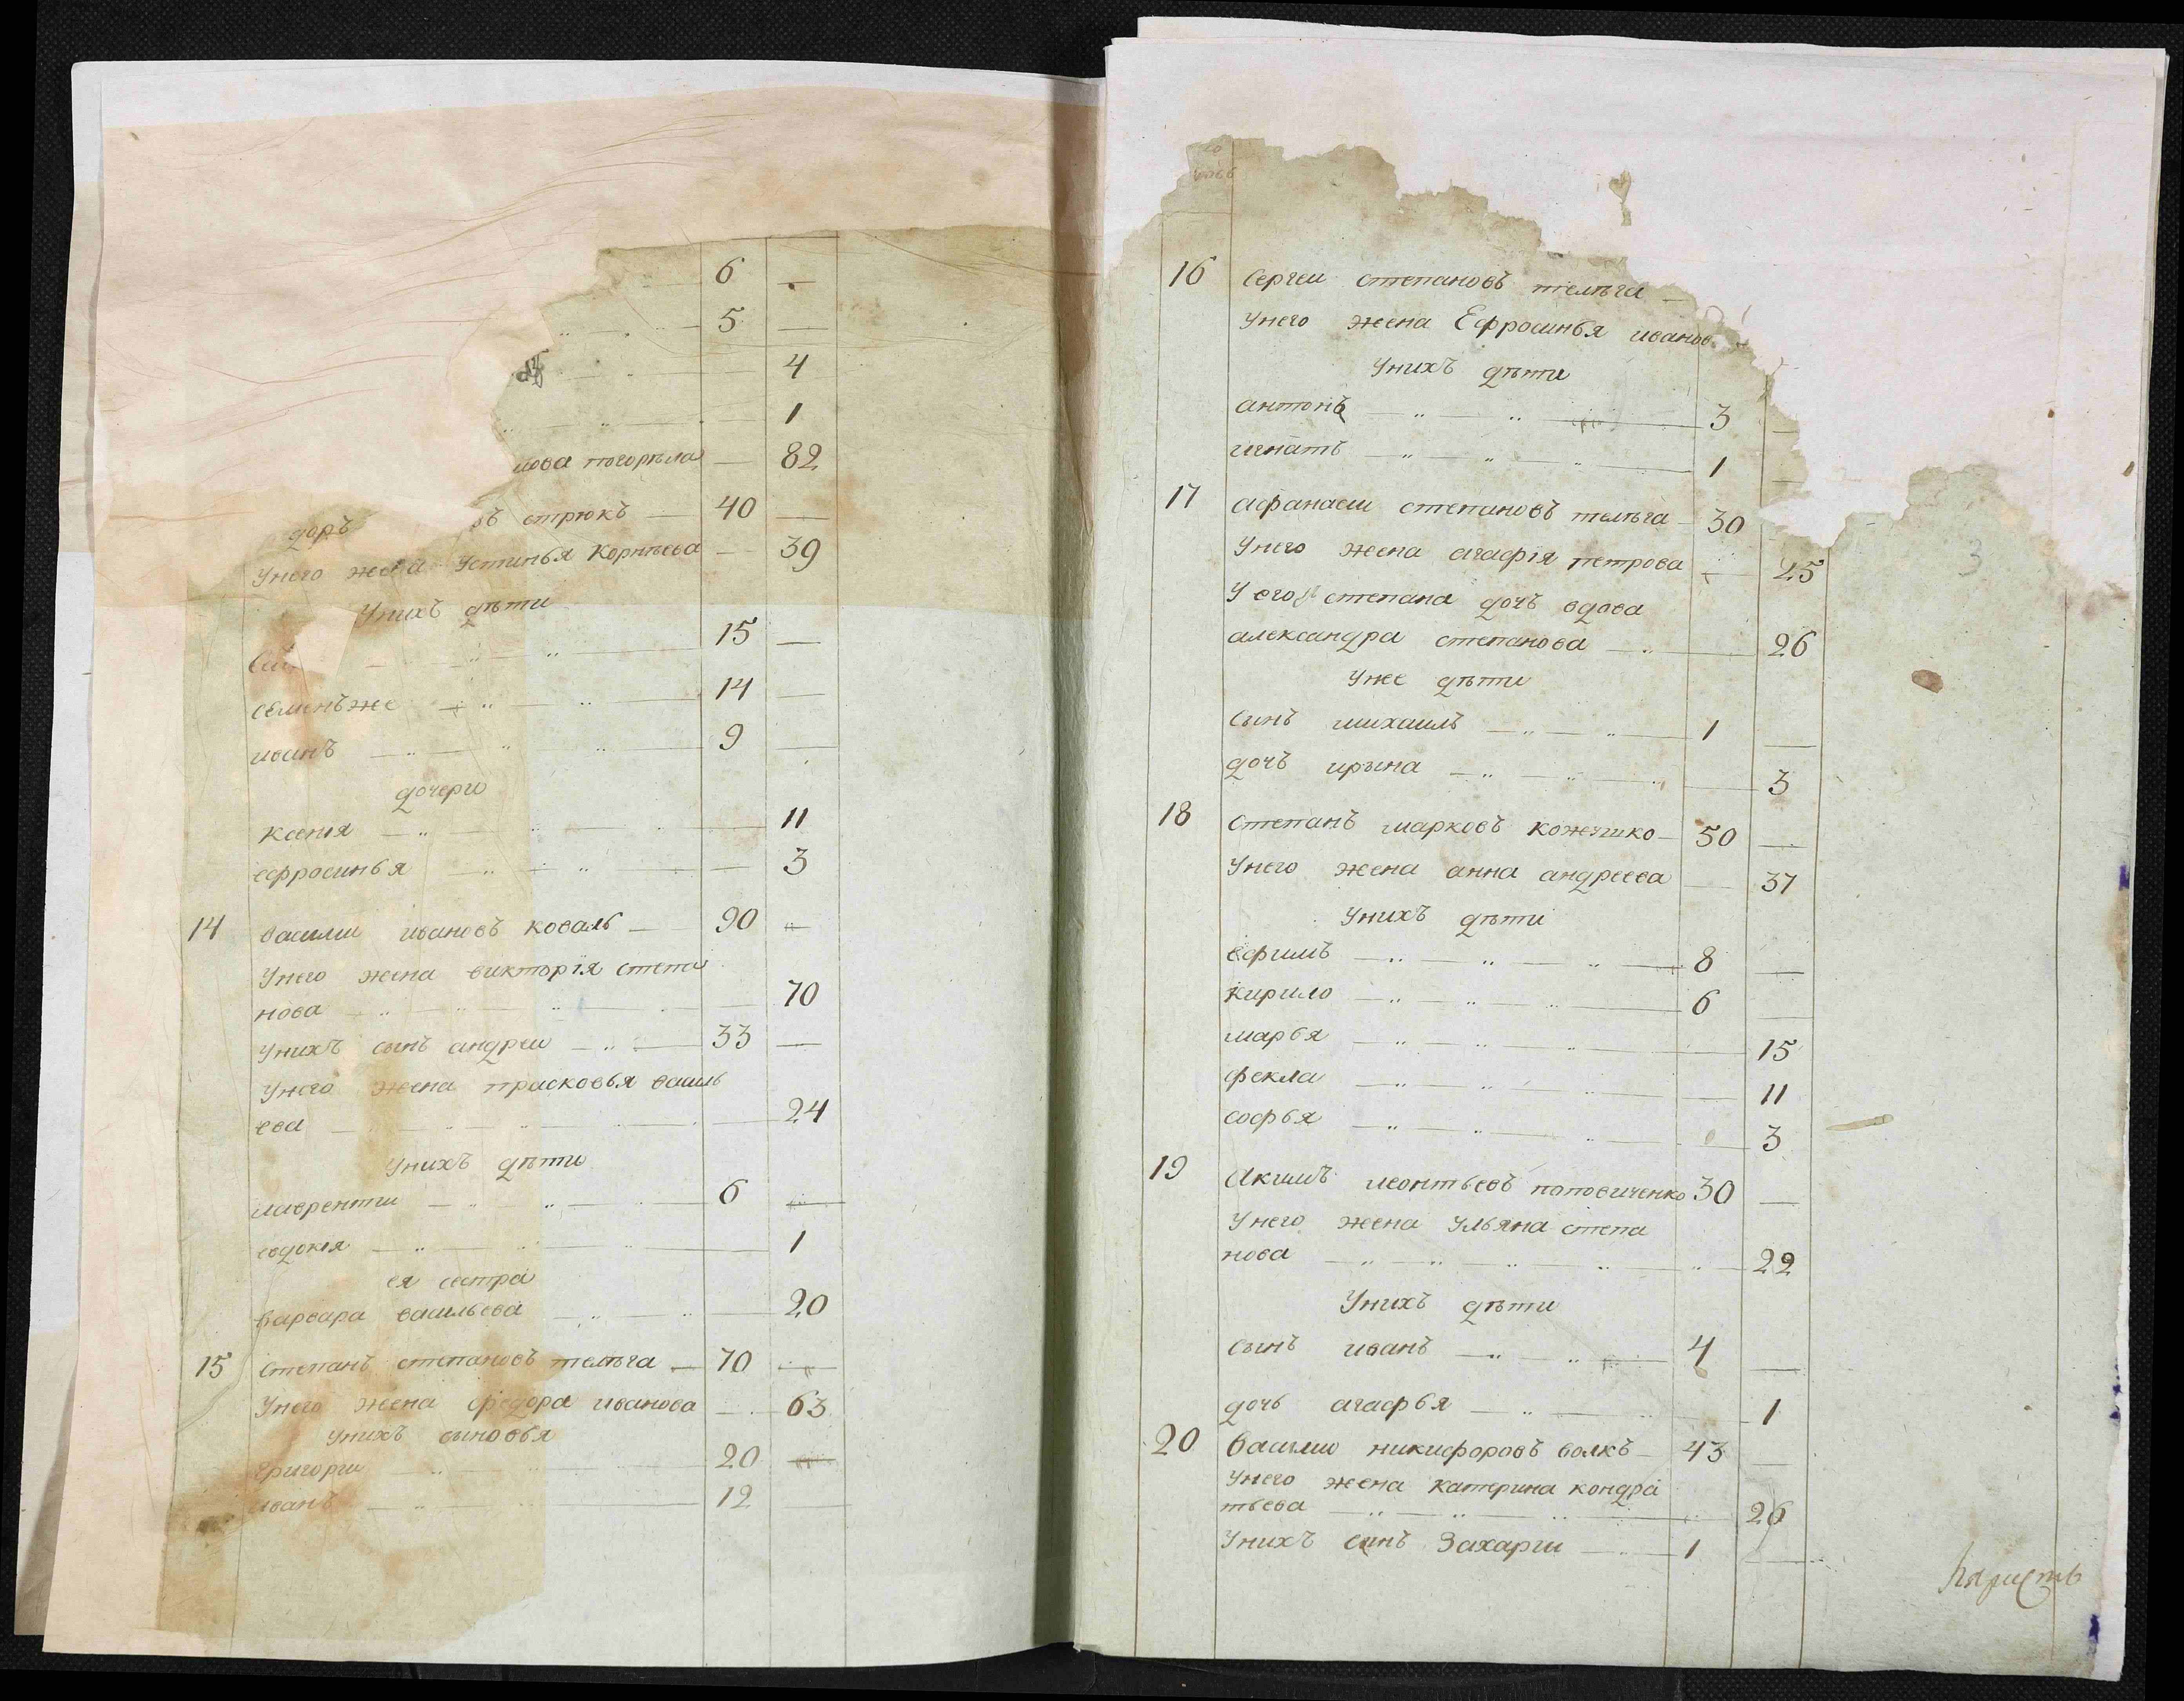 6 —
5 —
4
1
нова погорѣла — 82
доръ въ стрюкъ — 40 —
Унего жена Устинья Корнѣева — 39
Унихъ дѣти
15 —
семенъже — 14 —
иванъ — 9 —
дочери
ксенія — 11
ефросинья — 3
14 василии ивановъ коваль — 90 —
Унего жена викторія степа
нова — 70
Унихъ сынъ андреи — 33 —
Унего жена прасковья василь
ева — 24
Унихъ дѣти
лаврентии — 6 —
евдокія — 1
ея сестра
варвара васильева — 20
15 степанъ степановъ телѣга — 70 —
Унего жена федора иванова — 63
Унихъ сыновья
григории — 20 —
иванъ — 12 —
16 Сергеи степановъ телѣга —
Унего жена Ефросинья иванов
Унихъ дѣти
антонъ — 3 —
игнатъ — 1 —
17 афанасии степановъ телѣга — 30
Унего жена агафія петрова — 25
У его степана дочь вдова
александра степанова — 26
Унее дѣти
сынъ михаилъ — 1 —
дочь ирына — 3
3
18 степанъ марковъ кожечко — 50 —
Унего жена анна андреева — 37
Унихъ дѣти
ефимъ — 8 —
кирило — 6 —
марья — 15
фекла — 11
софья — 3
19 Акимъ леонтьевъ поповиченко 30 —
Унего жена ульяна степа
нова — 22
Унихъ дѣти
сынъ иванъ — 4 —
дочь агафья — 1
20 василии никифоровъ волкъ — 43 —
Унего жена катерина кондра
тьева — 26
Унихъ сынъ Захарии — 1 —